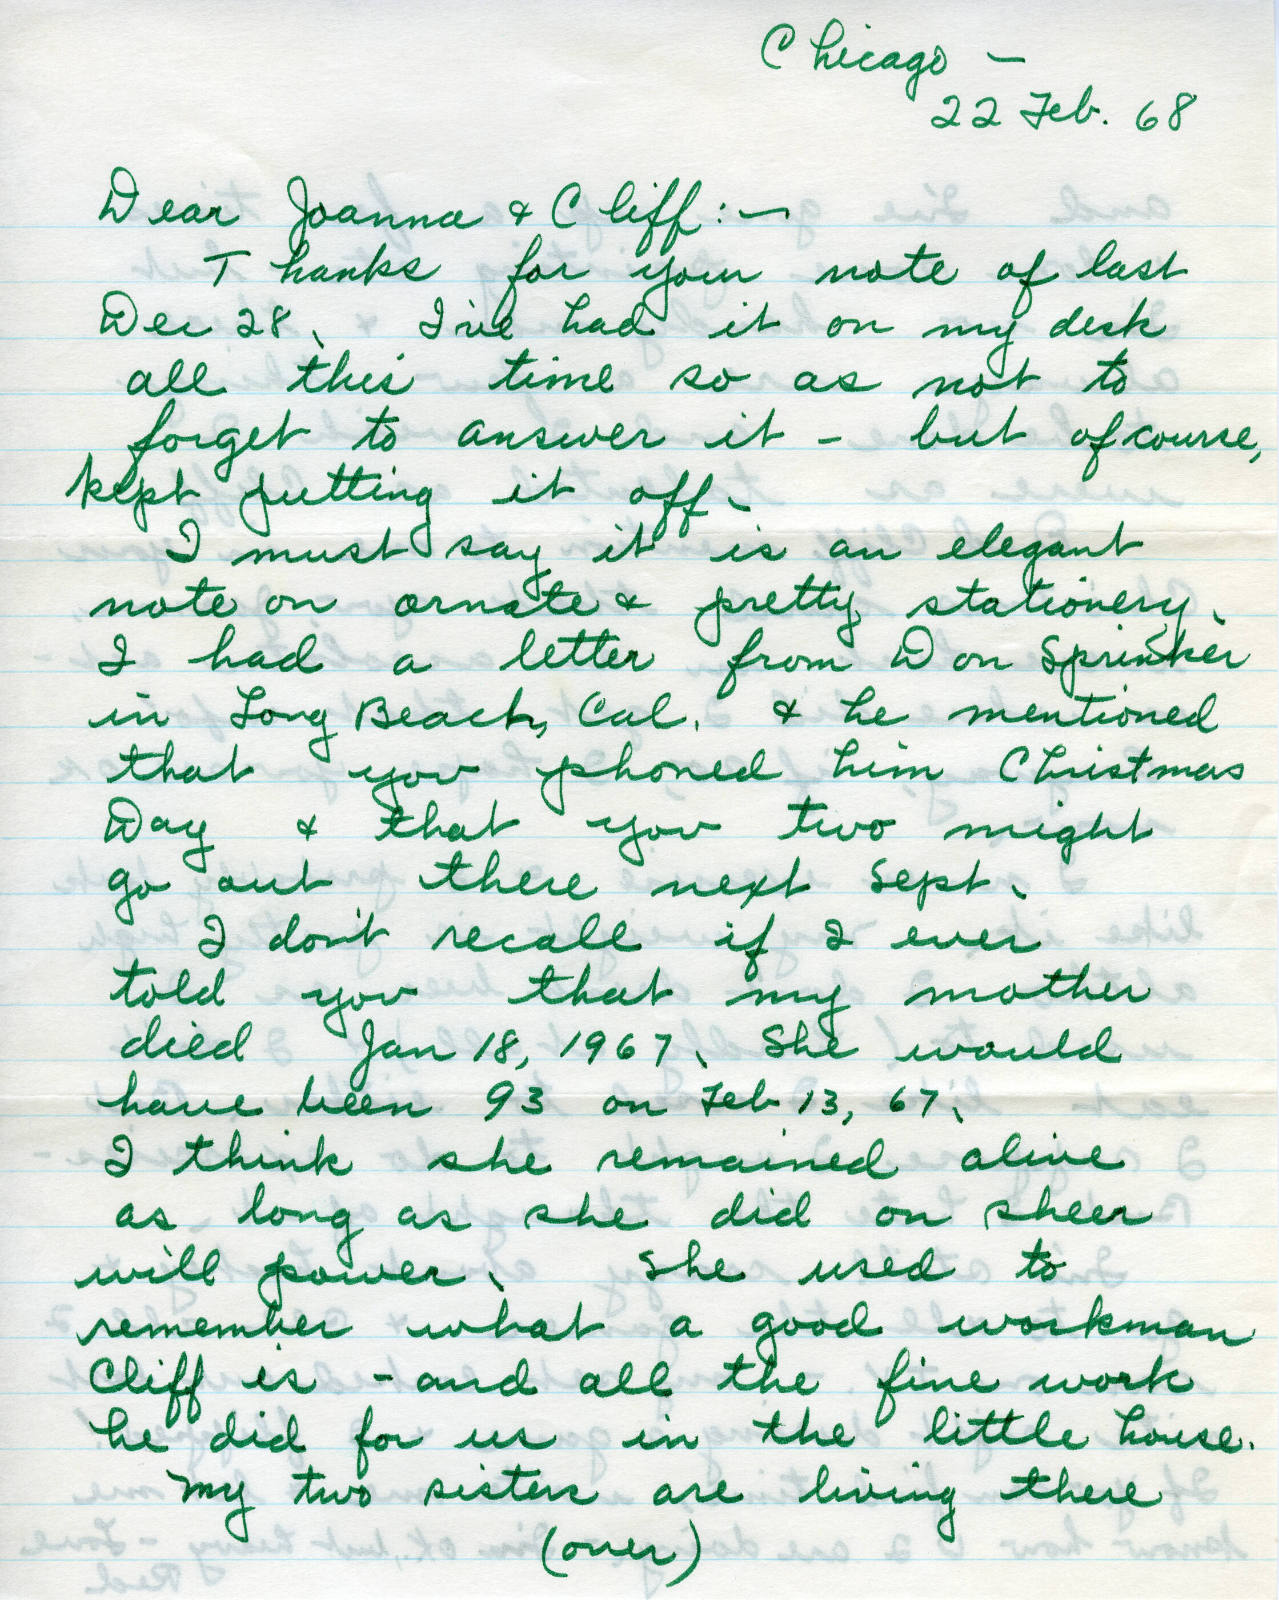 Chicago –
22 Feb. 68
Dear Joanna & Cliff: –
Thanks for your note of last
Dec 28. & I've had it on my desk
all this time so as not to
forget to answer it – but of course,
kept putting it off.
I must say it is an elegant
note on ornate & pretty stationery.
I had a letter from Don Sprinker
in Long Beach, Cal. & he mentioned
that you phoned him Christmas
Day & that you two might
go out there next Sept.
I don't recall if I ever
told you that my mother
died Jan 18, 1967. She would
have been 93 on Feb 13, 67.
I think she remained alive
as long as she did on sheer
will power. She used to
remember what a good workman
Cliff is – and all the fine work
he did for us in the little house.
My two sisters are living there
(over)